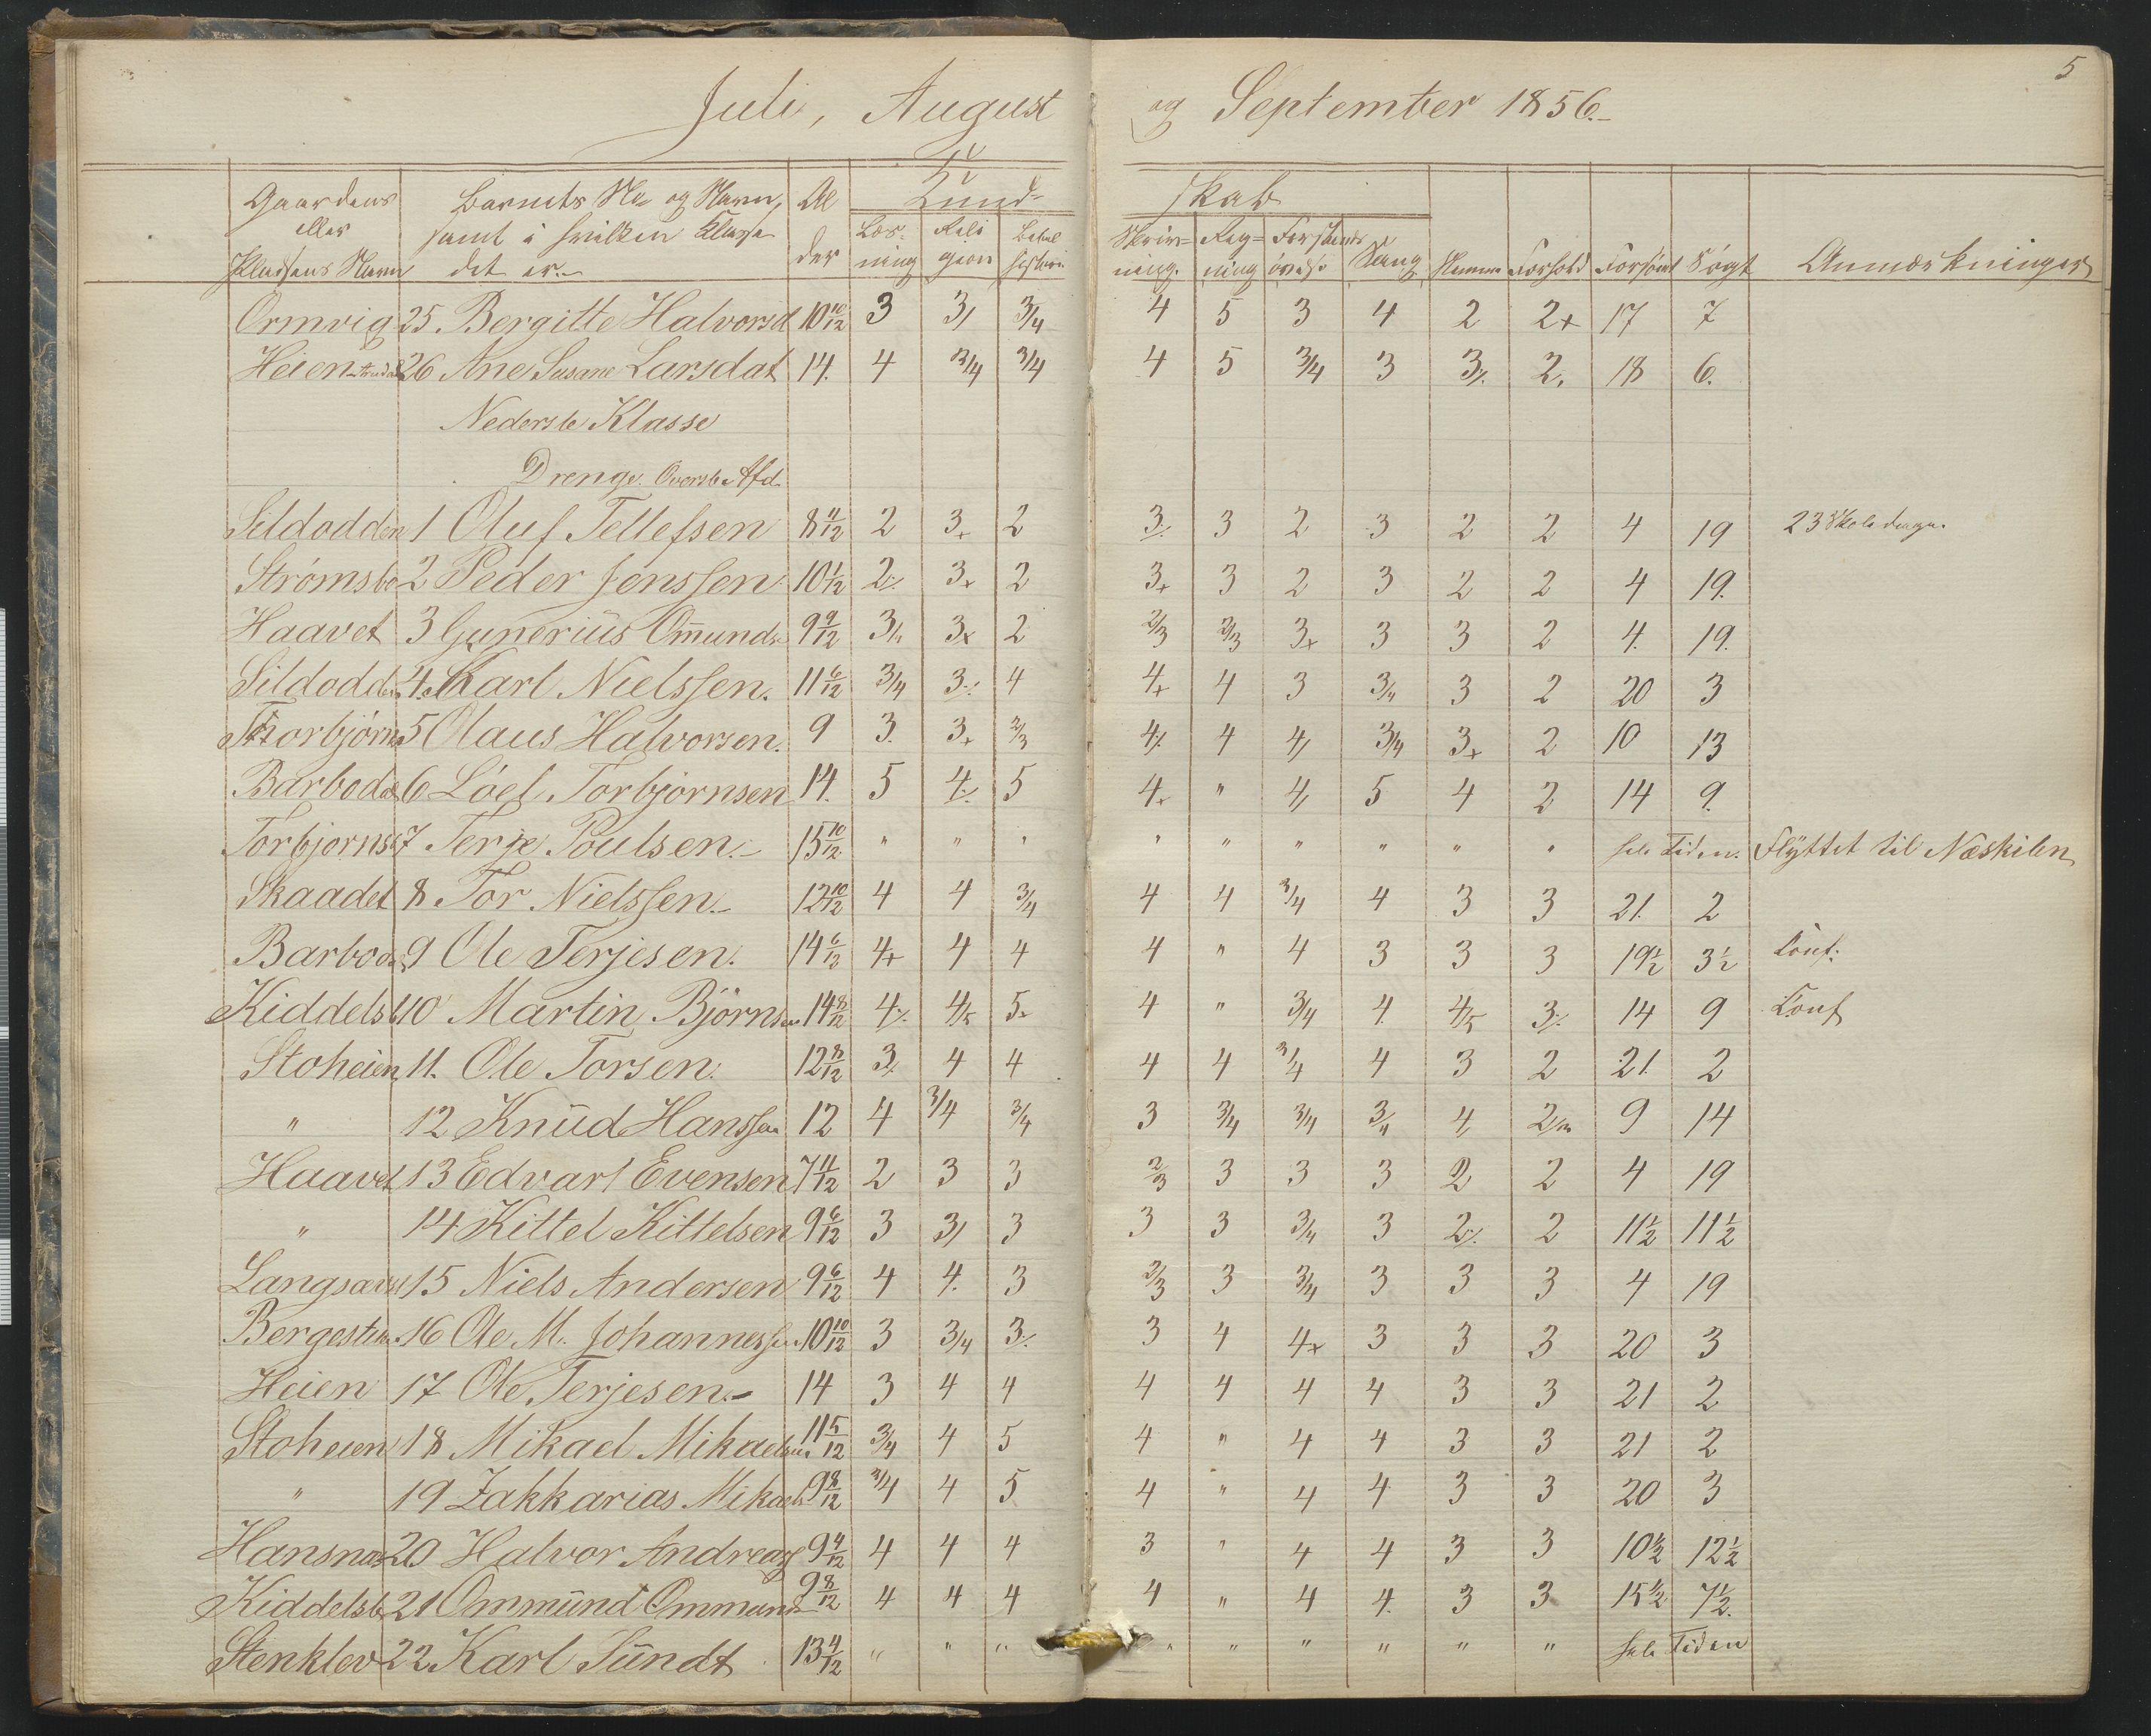 5
Juli, August og September 1856.
Kund= skab
Gaardens eller Pladsens Navn | Barnets No og Navn, samt i hvilken Klasse det er. | Al der | Læs= ning | Reli gion | Bibel historie | Skriv= ning. | Reg= ning | Forstands øvelse | Sang | Nemme | Forhold | Forsömt | Søgt | Anmærkninger
Ormvig 25. Bergitte Halvorsd 10 10/12 3 3/ 3/4 4 5 3 4 2 2+ 17 7
Heien 26 Ane Susane Larsdat 14. 4 3/4 3/4 4 5 3/4 3 3% 2. 18 6.
Nederste Klasse
Drenge. Overste Afd.
Sildodden 1 Oluf Tellefsen 8 11/12 2 3+ 2 3% 3 2 3 2 2 4 19 23 Skoledage.
Strömsbo 2 Peder Jenssen 10 1/12 2% 3+ 2 3+ 3 2 3 2 2 4 19.
Haavet 3 Gunerius Ommunds 9 9/12 3/4 3+ 2 2/3 2/3 3+ 3 3 2 4. 19.
Sildodden 4. Karl Nielssen. 11 6/12 3/4 3% 4 4+ 4 3 3/4 3 2 20 3
Thorbjörns 5 Olaus Halvorsen. 9 3. 3+ 2/3 4% 4 4/ 3/4 3+ 2 10 13
Barbodal 6 Löel Torbjörnsen 14. 5 4% 5 4+ " 4/ 5 4 2 14 9.
Torbjornsb 7 Terje Poulsen. 15 10/12 " " " " " " " " " hele Tiden. Flyttet til Næskilen
Skaadel 8 Tor Nielssen. 12 10/12 4 4 3/4 4 4 3/4 4 3 3 21. 2
Barbodal 9 Ole Terjesen. 14 6/12 4+ 4 4 4 " 4 3 3 3 19 1/2 3 1/2 Conf:
Kiddelsb 10 Martin Björnsen 14 8/12 4% 4/5 5+ 4 " 3/4 4. 4/5 3% 14 9 Conf
Stoheien 11. Ole Torsen. 12 8/12 3/ 4 4 4 4 3/4 4 3 2 21. 2
" 12 Knud Hanssen 12 4 3/4 3/4 3 3/4 3/4 3/4 4/ 2/3 9 14
Haavet 13 Edvart Evensen 7 11/12 2 3 3 2/3 3 3 3 2 2 4 19
" 14 Kittel Kittelsen 9 6/12 3 3/ 3 3 3 3/4 3 2% 2 11 1/2 11 1/2
Langsæv 15 Niels Andersen 9 6/12 4 4. 3 2/3 3 3/4 3 3 3 4 19
Bergesten 16 Ole M. Johannessen 10 10/12 3 3/4 3% 3 4 4+ 3 3 3 20 3
Heien 17 Ole Terjesen. 14 3 4 4 4 4 4 4 3 3 21 2
Stoheien 18 Mikael Mikaelsen. 11 5/12 3/4 4 5 4 " 4 4 3 3 21 2
" 19 Zakkarias Mikaels 9 8/12 3/4 4 5 4 " 4 4. 3 3 20 3
Hansnæs 20 Halvor Andreas 9 4/12 4 4 4 3 " 4 4 3 3 10 1/2 12 1/2
Kiddelsb 21 Ommund Ommunds 9 8/12 4 4 4 4 " 4 4. 3 3 15 1/2 7 1/2.
Stenklev 22 Karl Sundt 13 4/12 " " " " " " " " " hele Tiden